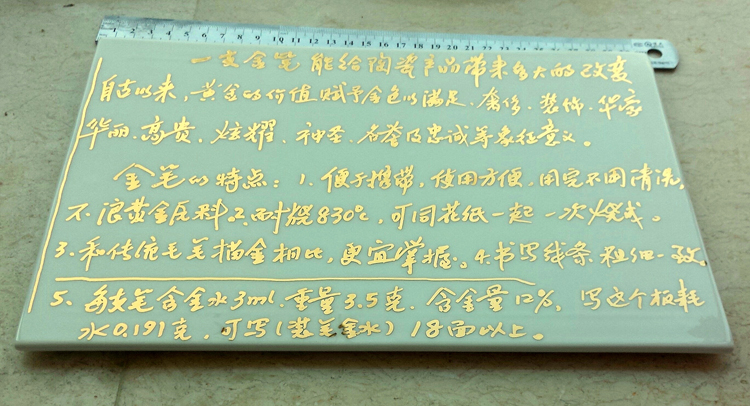 一支金笔能给陶瓷产品带来多大的改变
自古以来，黄金的价值赋予金色以满足、奢侈、装饰、华豪
华丽、高贵、炫耀、神圣、名誉及忠诚等象征意义。
金笔的特点：1. 便于携带，使用方便，用完不用清洗，
不浪黄金原料 2. 耐烧830℃，可同花纸一起一次烧成。
3. 和传统毛笔描金相比，更宜掌握。4. 书写线条粗细一致。
5. 每支笔含金水3ml. 重量3.5克. 含金量12%， 写这个板耗
水0.191克，可写(装美金水)18面以上。
1 2 3 4 5 6 7 8 9 10 11 12 13 14 15 16 17 18 19 20 21 22 23